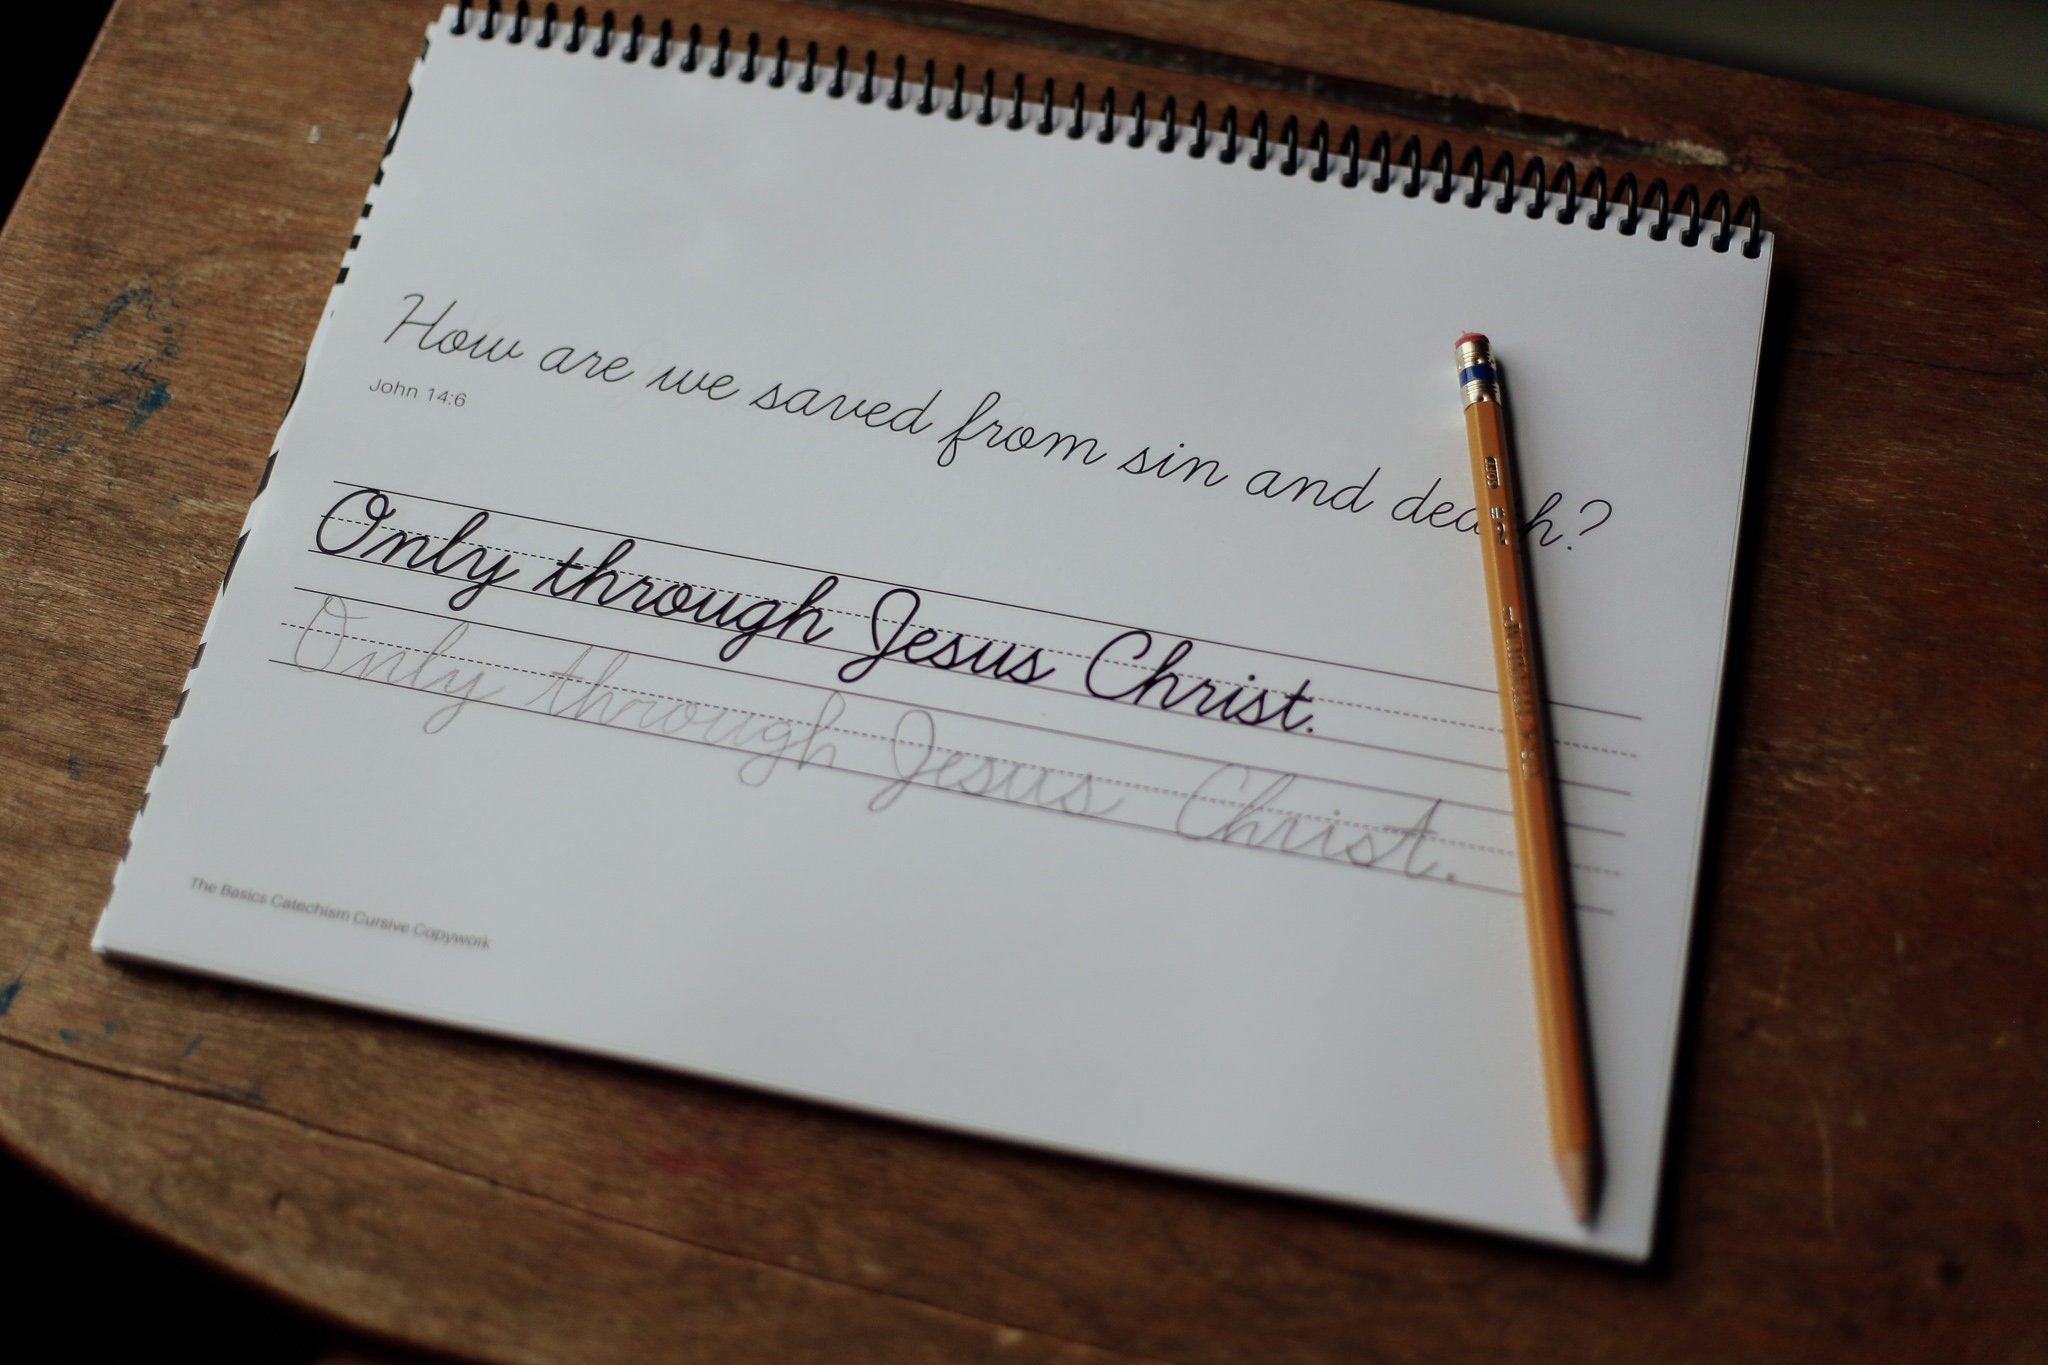 How are we saved from sin and death?
John 14:6
Only through Jesus Christ.
Only through Jesus Christ.
The Basics Catechism Cursive Copywork
SOFT
#2